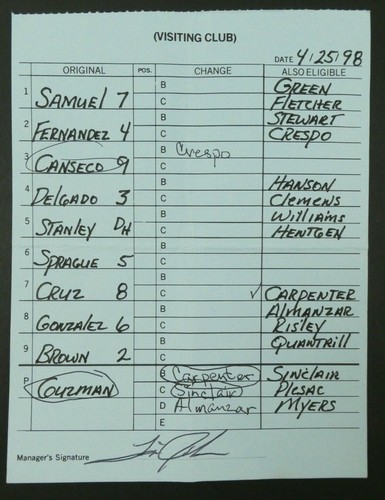 (VISITING CLUB)
DATE 4/25/98
ORIGINAL POS. CHANGE ALSO ELIGIBLE
1 SAMUEL 7 B GREEN
C FLETCHER
2 FERNANDEZ 4 B STEWART
C CRESPO
3 CANSECO 9 B Crespo
C
4 DELGADO 3 B HANSON
C Clemens
5 STANLEY DH B Williams
C HENTGEN
6 SPRAGUE 5 B
C
7 CRUZ 8 B
C ✓ CARPENTER
8 GONZALEZ 6 B ALMANZAR
C RISLEY
9 BROWN 2 B QUANTRILL
C
P GUZMAN B Carpenter SINCLAIR
C Sinclair PLESAC
D Almanzar MYERS
E
Manager's Signature